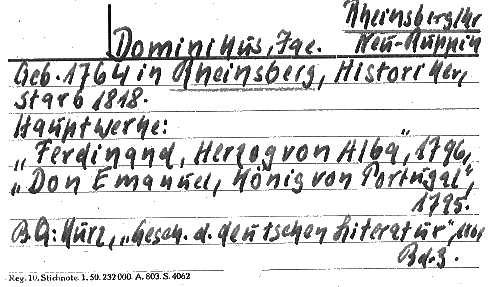 Rheinsberg/Kr
Neu-Ruppin
Dominikus, Jac.
Geb. 1764 in Rheinsberg, Historiker,
starb 1818.
Hauptwerke:
„Ferdinand, Herzog von Alba", 1796,
„Don Emanuel, König von Portugal",
1795.
BQ: Kurz, „Gesch. d. deutschen Literatur",
Bd. 3.
Reg. 10. Stichnote. 1. 50. 232000. A. 803. S. 4062